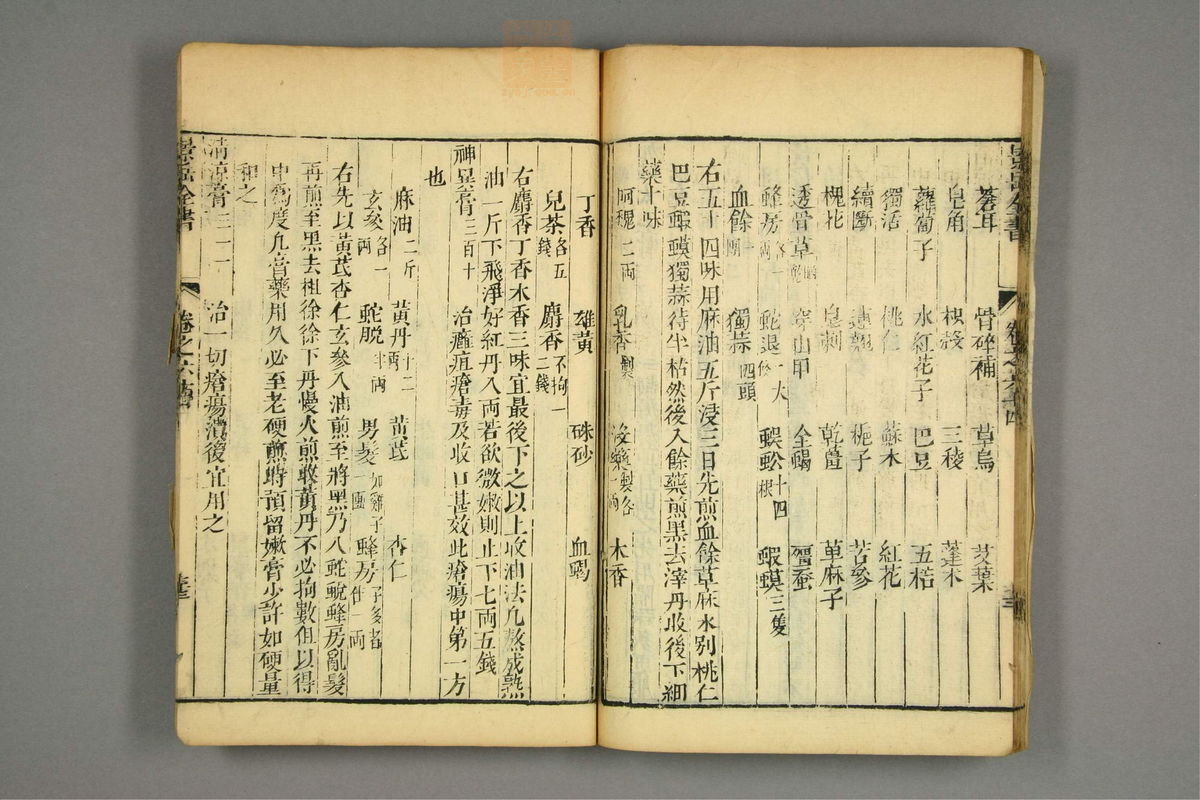 景岳全書
卷之六十四
蒼耳 骨碎補 草烏 艾葉
皂角 枳殻 三稜 蓬朮
蘿蔔子 水紅花子 巴豆 五棓
獨活 桃仁 蘇木 紅花
續斷 連翹 梔子 苦參
槐花 皂刺 乾薑 萆麻子
透骨草 穿山甲 全蝎 殭蚕
蜂房各一兩 蛇退一大條 蜈蚣十四根 蝦蟆三隻
血餘一團 獨蒜四頭
右五十四味用麻油五斤浸三日先煎血餘草麻水別桃仁
巴豆蝦蟆獨蒜待半枯然後入餘藥煎黑去滓丹收後下細
藥十味
阿魏二兩 乳香製 沒藥製各一兩 木香
丁香 雄黃 硃砂 血竭
兒茶各五錢 麝香不拘一二錢
右麝香丁香水香三味宜最後下之以上收油法凡熬成熟
油一斤下飛淨好紅丹入兩若欲微嫩則止下七兩五錢
神異膏三百十 治癰疽瘡毒及收口甚效此瘡瘍中第一方
也
麻油二斤 黃丹十二兩 黃茋 杏仁
玄參各一兩 蛇脫半兩 男髮如雞子一團 蜂房子多者佳一兩
右先以黃茋杏仁玄參入油煎至將黑乃入蛇蛻蜂房亂髮
再煎至黑去柤徐徐下丹慢火煎收黃丹不必拘數但以得
中爲度凡膏藥用久必至老硬煎時預留嫩膏少許如硬量
和之
清涼膏三二一 治一切瘡瘍潰後宜用之
景岳全書
卷之六十四